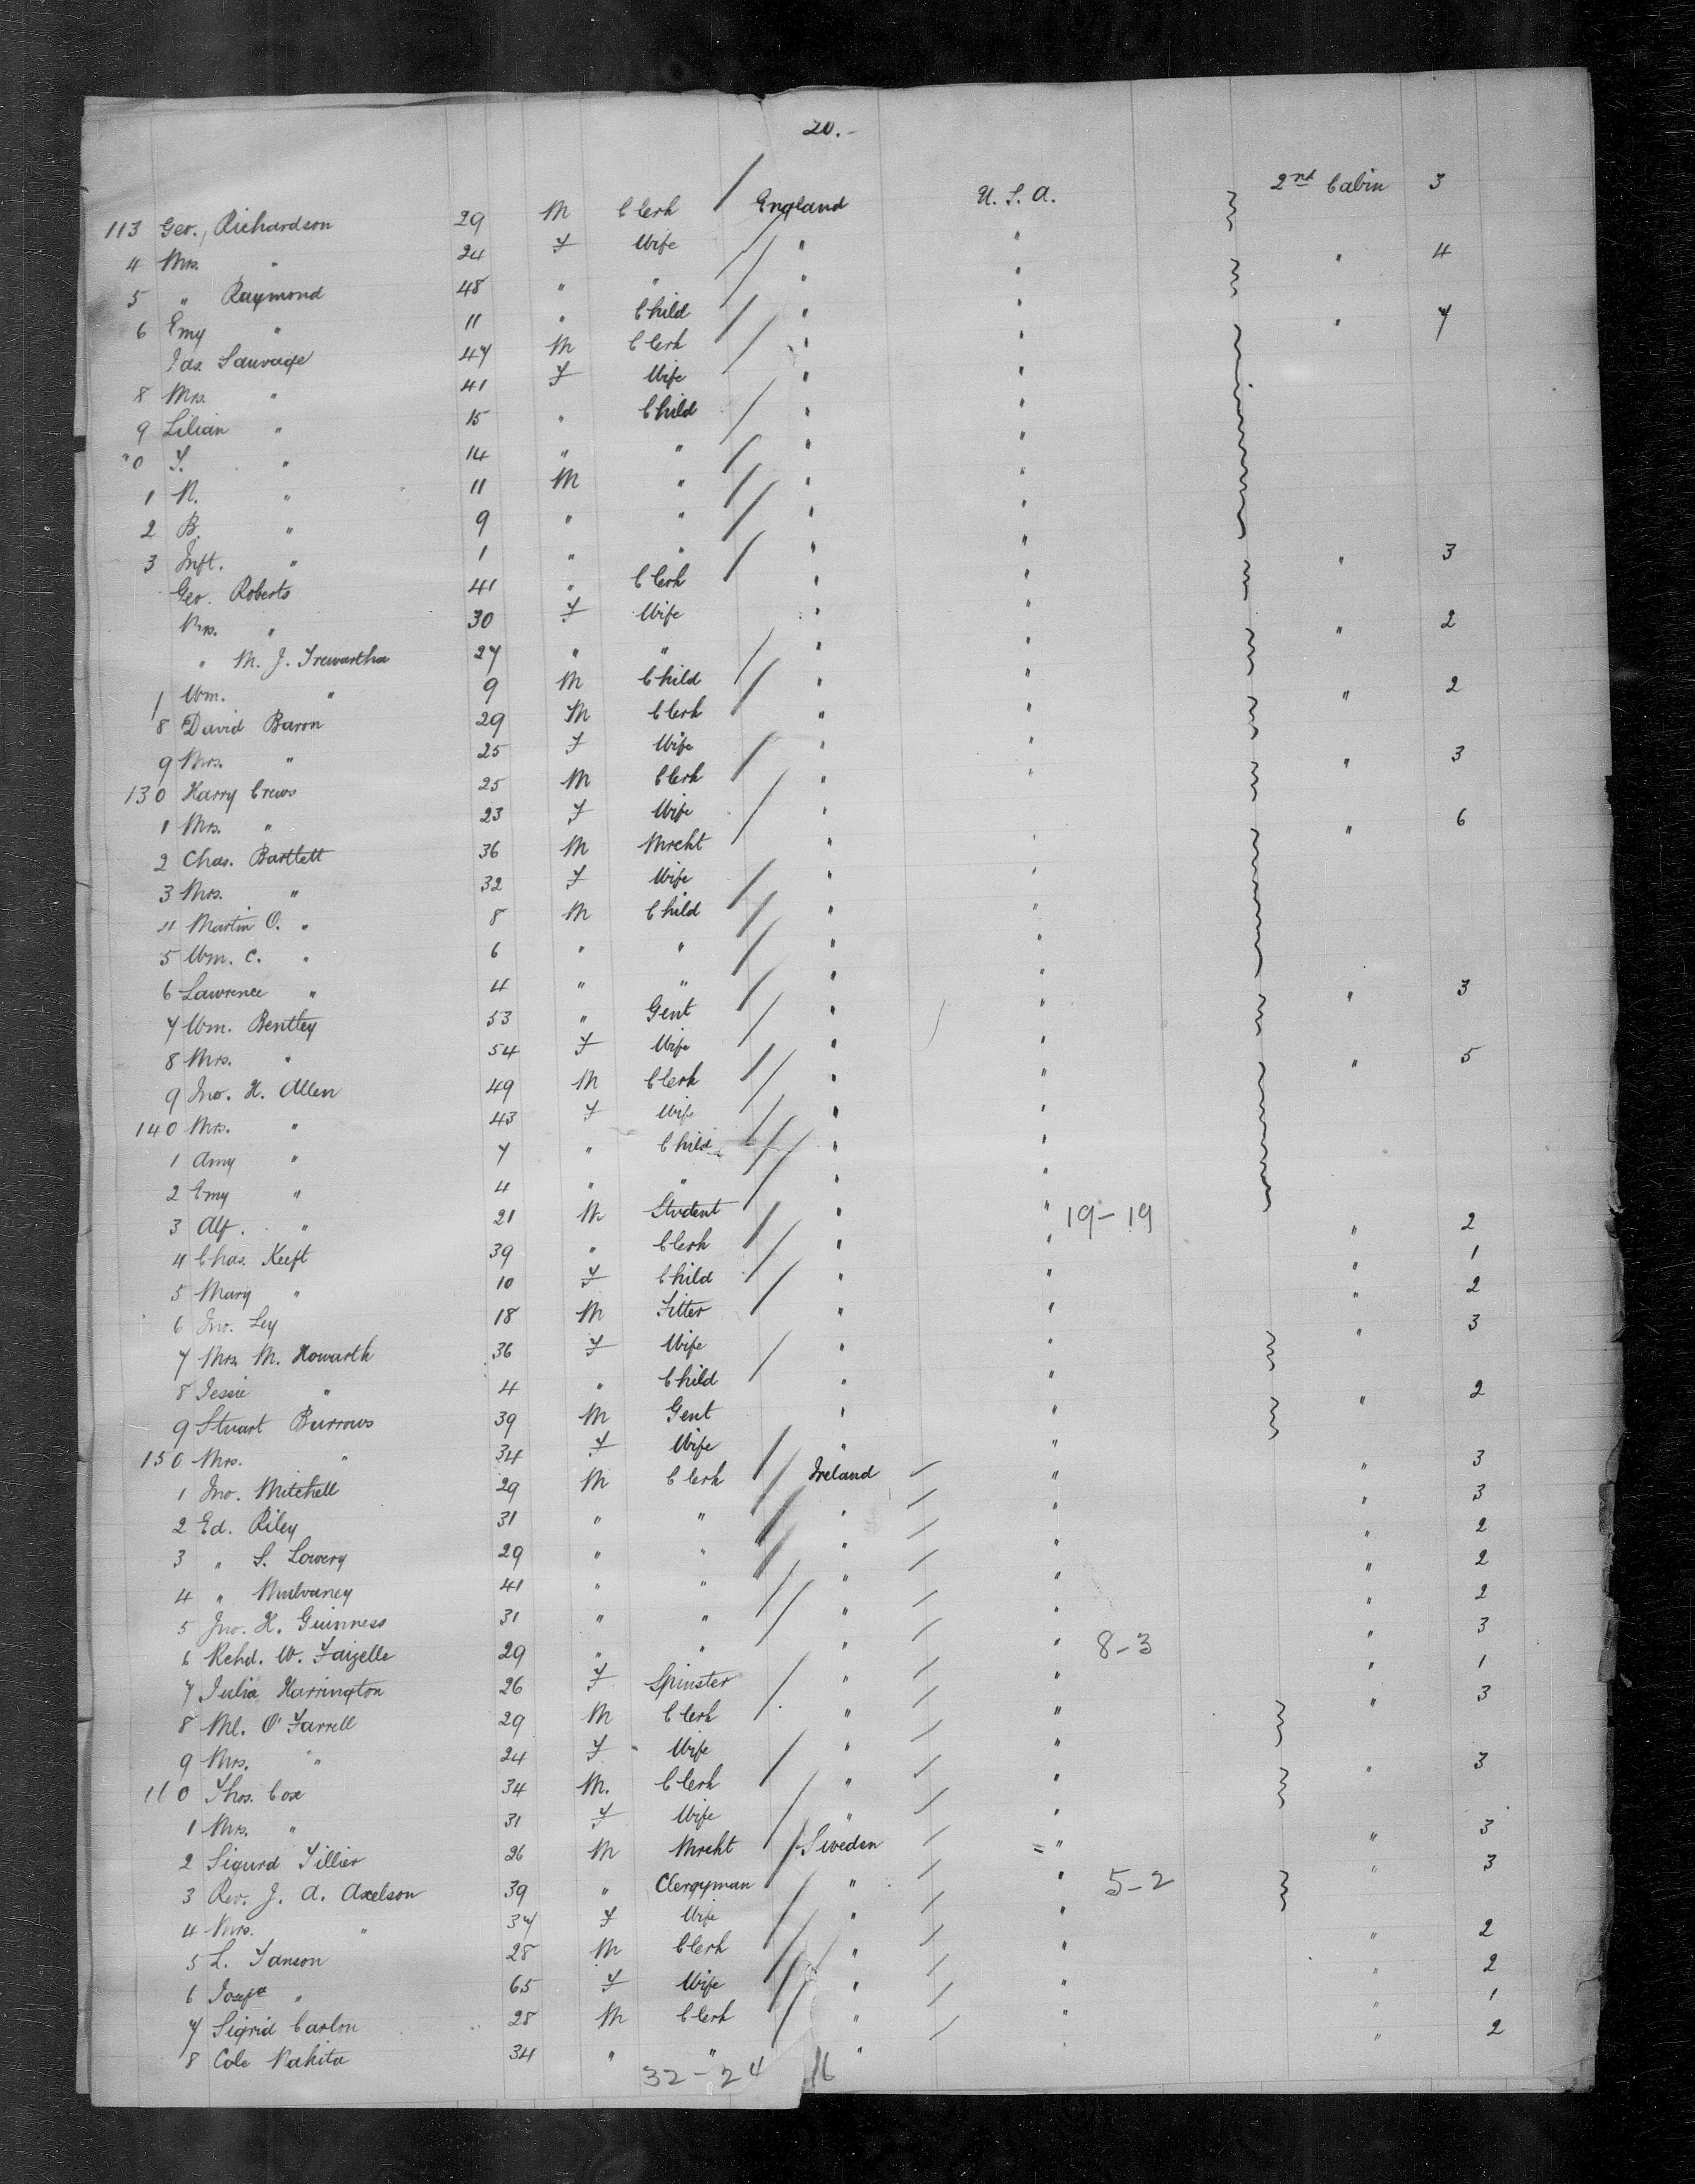 20.-
113 Geo. Richardson 29 M Clerk England U.S.A. 2nd Cabin 3
4 Mrs. " 24 F Wife " "
5 " Raymond 48 " " " " " 4
6 Emy " 11 " Child " "
Jas. Sauvage 47 M Clerk " " " 7
8 Mrs. " 41 F Wife " "
9 Lilian " 15 " Child " "
20 F. " 14 " " " "
1 N. " 11 M " " "
2 B. " 9 " " " "
3 Inft. " 1 " " " "
Geo. Roberts 41 " Clerk " " " 3
Mrs. " 30 F Wife " "
" M. J. Trewartha 27 " " " " " 2
Wm. " 9 M Child " "
8 David Baron 29 M Clerk " " " 2
9 Mrs. " 25 F Wife " "
130 Harry Crews 25 M Clerk " " " 3
1 Mrs. " 23 F Wife " "
2 Chas. Bartlett 36 M Mrcht " " " 6
3 Mrs. " 32 F Wife " "
4 Martin O. " 8 M Child " "
5 Wm. C. " 6 " " " "
6 Lawrence " 4 " " " "
7 Wm. Bentley 53 " Gent " " " 3
8 Mrs. " 54 F Wife " "
9 Jno. H. Allen 49 M Clerk " " " 5
140 Mrs. " 43 F Wife " "
1 Amy " 7 " Child " "
2 Emy " 4 " " " "
3 Alf. " 21 M Student " " 19-19
4 Chas. Keeft 39 " Clerk " " " 2
5 Mary " 10 F Child " " " 1
6 Jno. Ley 18 M Fitter " " " 2
7 Mrs. M. Howarth 36 F Wife " " " 3
8 Jessie " 4 " Child " "
9 Stuart Burrows 39 M Gent " " " 2
150 Mrs. " 34 F Wife " "
1 Jno. Mitchell 29 M Clerk Ireland " " 3
2 Ed. Riley 31 " " " " " 3
3 " S. Lowery 29 " " " " " 2
4 " Mulvaney 41 " " " " " 2
5 Jno. H. Guinness 31 " " " " " 2
6 Rchd. W. Faizelle 29 " " " " 8-3 " 3
7 Julia Harrington 26 F Spinster " " " 1
8 Ml. O'Farrell 29 M Clerk " " " 3
9 Mrs. " 24 F Wife " "
160 Thos. Cox 34 M. Clerk " " " 3
1 Mrs. " 31 F Wife " "
2 Sigurd Tillier 26 M Mrcht Sweden " " 3
3 Rev. J. A. Axelson 39 " Clergyman " " 5-2 " 3
4 Mrs. " 37 F Wife " "
5 L. Janson 28 M Clerk " " " 2
6 Josefa " 65 F Wife " " " 2
7 Sigrid Carlon 28 M Clerk " " " 1
8 Cole Nakita 34 " " " " " 2
32-24 16